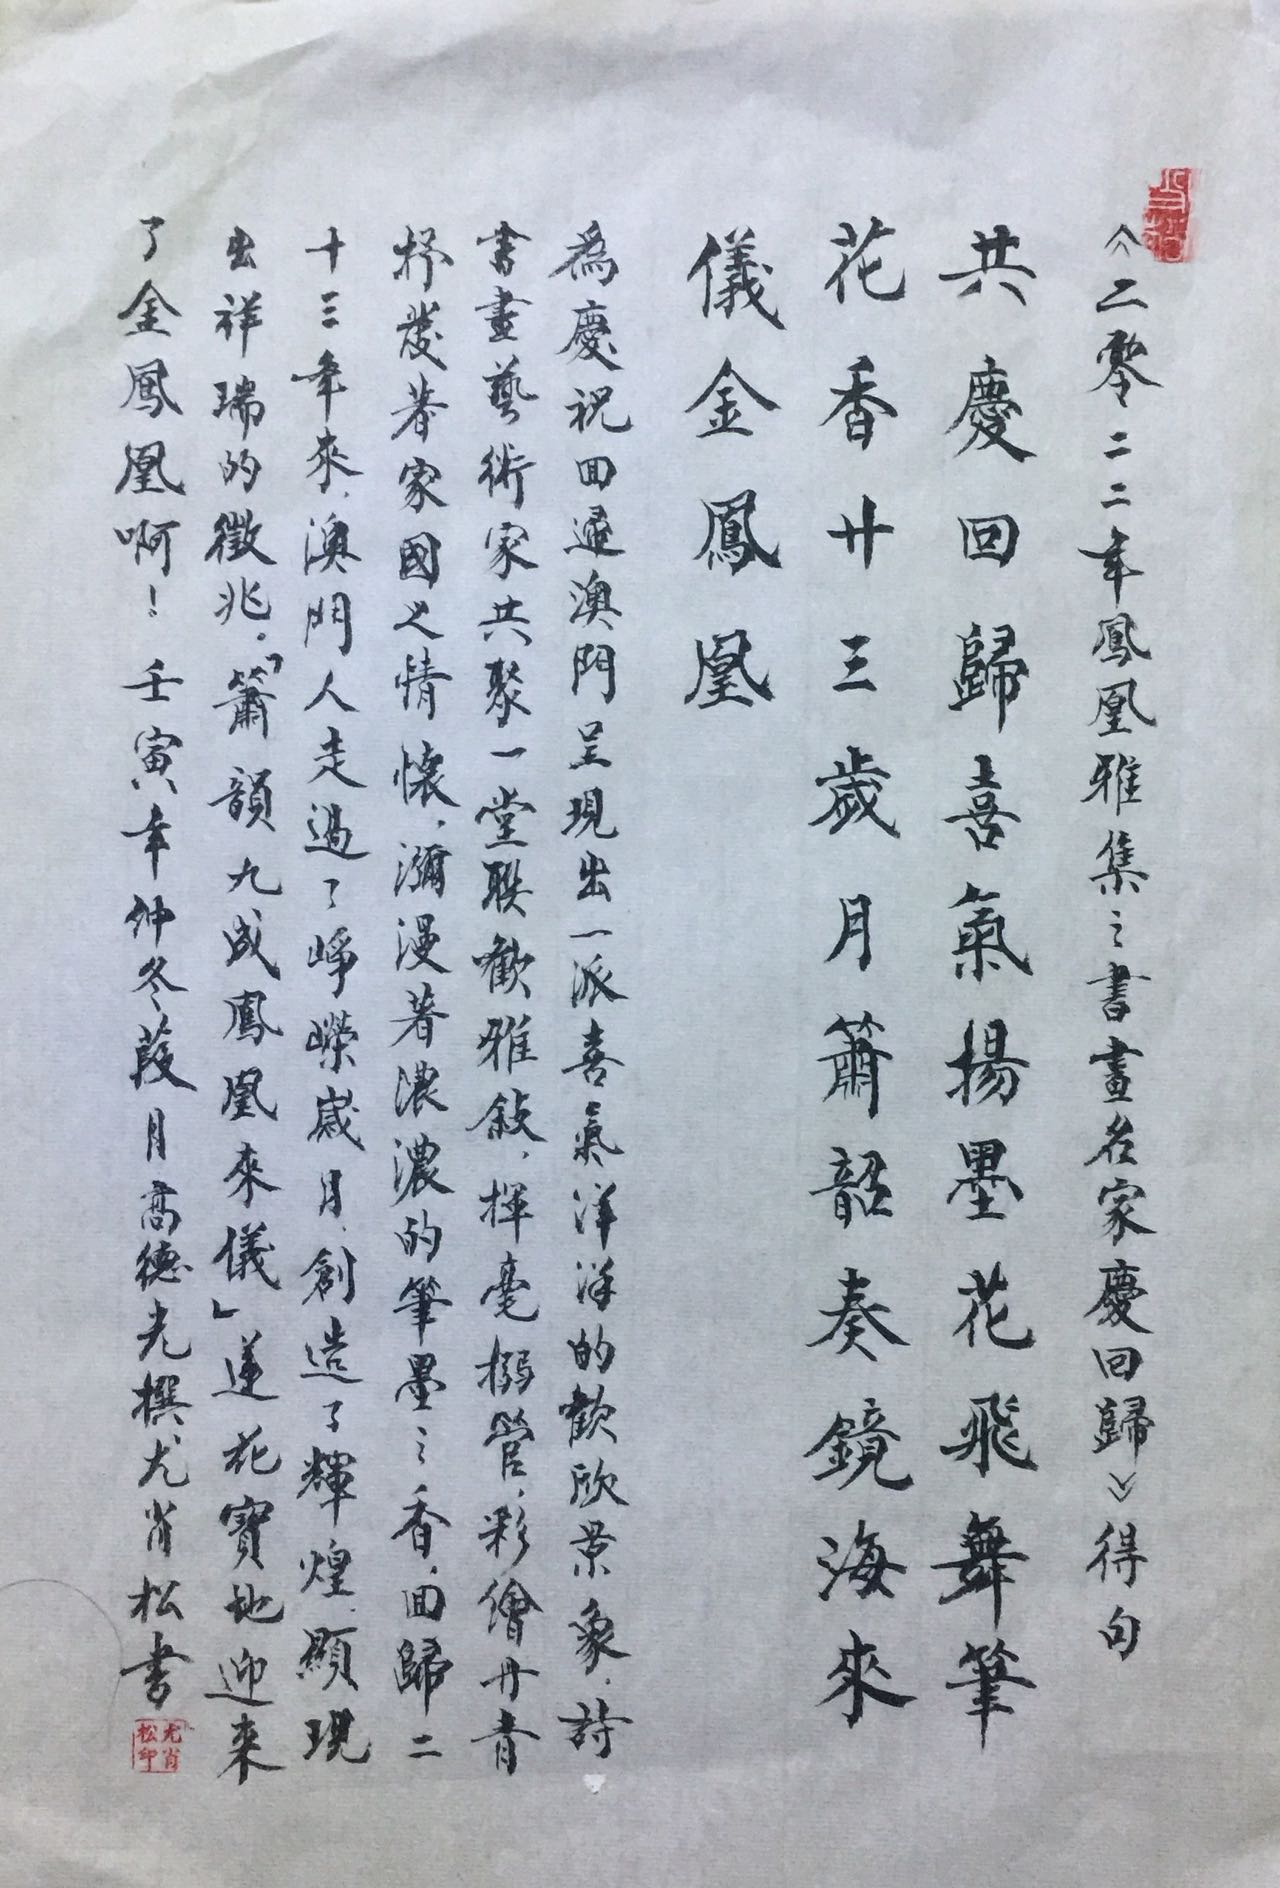 《二零二二年鳳凰雅集之書畫名家慶回歸》得句
共慶回歸喜氣揚墨花飛舞筆
花香廿三歲月簫韶奏鏡海來
儀金鳳凰
為慶祝回歸澳門呈現出一派喜氣洋洋的歡欣景象，詩
書畫藝術家共聚一堂聯歡雅敍，揮毫搦管，彩繪丹青
抒發着家國之情懷，瀰漫着濃濃的筆墨之香，回歸二
十三年來，澳門人走過了崢嶸歲月，創造了輝煌，顯現
出祥瑞的徵兆，「簫韻九成鳳凰來儀」蓮花寶地迎来
了金鳳凰啊！ 壬寅年仲冬葭月高德光撰尤肖松書
尤肖松印